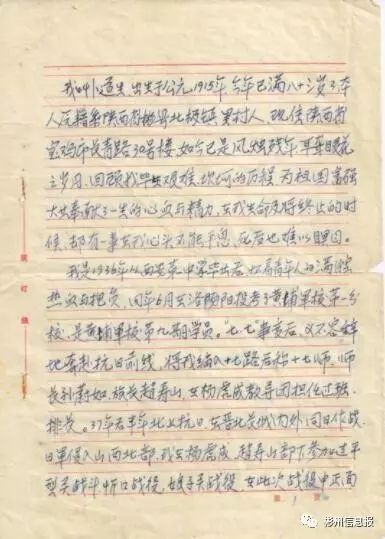 我叫 道生,出生于公元1915年,今年已满八十二岁了,本
人原籍 陕西省彬县北极镇 村人,现住陕西省
宝鸡市长青路30号楼,如今已是风烛残年,耳聋眼花
之岁月,回顾我毕生艰难、坎坷的历程,为祖国富强
大业奉献了一生的心血与精力,在我生命及将终止的时
候,都有一事在我心头不能平息,死后也难以瞑目。
我是1936年从西安 中学毕业后,怀着青年人的满腔
热血与抱负,同年6月去洛阳投考了黄埔军校第一分
校,是黄埔军校第九期学员。"七七"事变后,义不容辞
地奔赴抗日前线,将我编入十七路后称十七师,师
长孙蔚如,旅长赵寿山,在杨虎城教导团担任过班、
排长。37年后半年北上抗日,在晋北长城内外同日作战,
日军侵入山西北部,我在杨虎城、赵寿山部下参加过平
型关战斗,忻口战役,娘子关战役,在此次战役中正面
第 页
彬州信息报